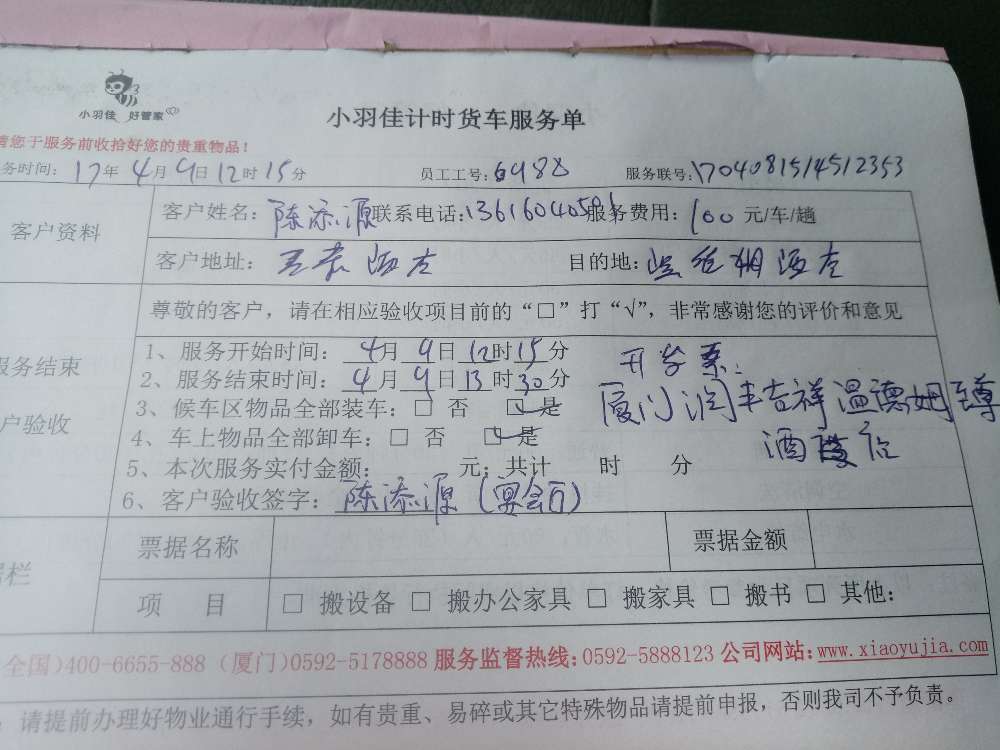 小羽佳 好管家
小羽佳计时货车服务单
请您于服务前收拾好您的贵重物品！
务时间: 17年4月9日12时15分 员工工号: 6988 服务联号: 1704081514512353
客户资料
客户姓名: 陈添源 联系电话: 13616040501 服务费用: 100 元/车/趟
客户地址: 酒店 目的地: 酒店
尊敬的客户，请在相应验收项目前的“□”打“√”，非常感谢您的评价和意见
服务结束
户验收
1、服务开始时间: 4月9日12时15分
2、服务结束时间: 4月9日13时30分
3、候车区物品全部装车: □ 否 ☑ 是
4、车上物品全部卸车: □ 否 ☑ 是
5、本次服务实付金额: 元; 共计 时 分
6、客户验收签字: 陈添源 (宴会厅)
开发票:
厦门润丰吉祥温德姆至尊
酒店
栏
票据名称 票据金额
项 目 □ 搬设备 □ 搬办公家具 □ 搬家具 □ 搬书 □ 其他:
全国)400-6655-888 (厦门)0592-5178888 服务监督热线:0592-5888123 公司网站:www.xiaoyujia.com
: 请提前办理好物业通行手续，如有贵重、易碎或其它特殊物品请提前申报，否则我司不予负责。